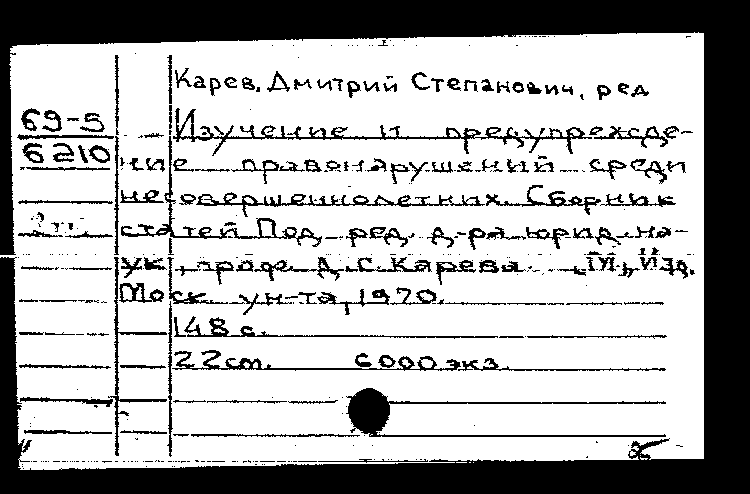 Карев, Дмитрий Степанович, ред
69-5
6210
Изучение и предупрежде-
ние правонарушений среди
несовершеннолетних. Сборник
статей Под ред. д-ра юрид. на-
ук, проф. Д. С. Карева. „М“, Изд.
Моск. ун-та, 1970.
148 с.
22 cm. 6000 экз.